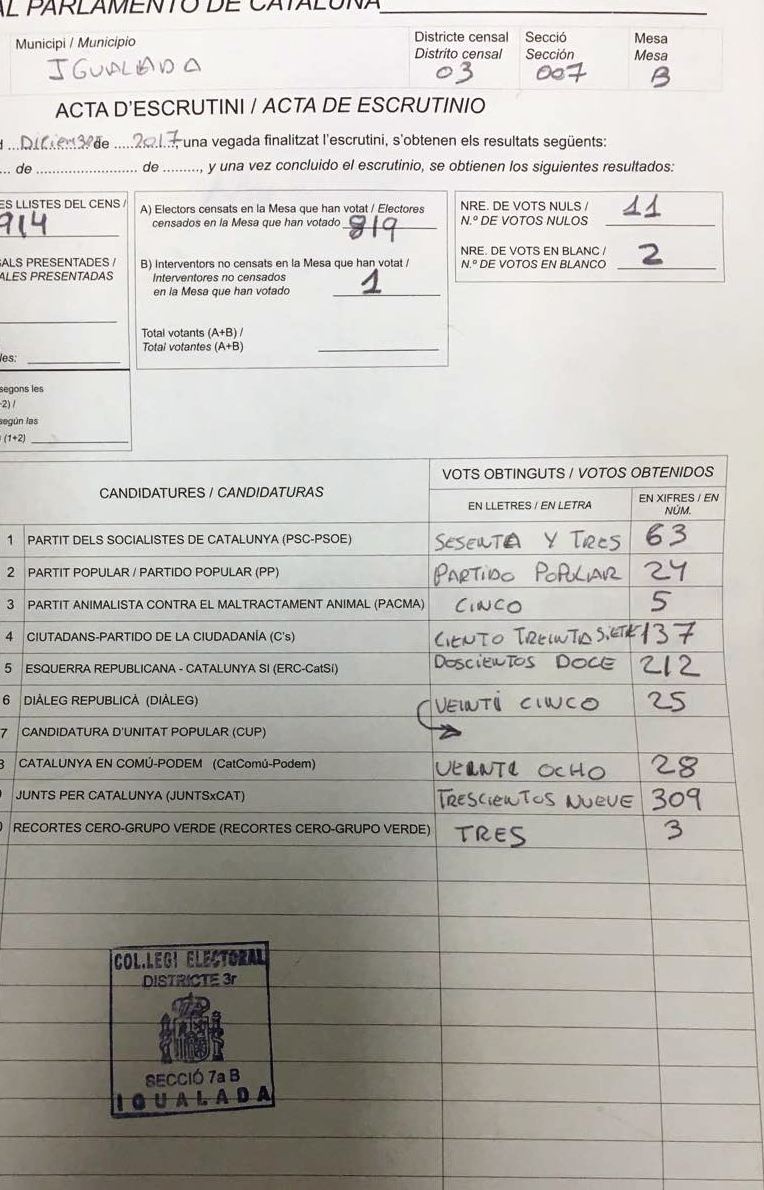 AL PARLAMENTO DE CATALUÑA
Municipi / Municipio
IGUALADA
Districte censal
Distrito censal
03
Secció
Sección
007
Mesa
Mesa
B
ACTA D'ESCRUTINI / ACTA DE ESCRUTINIO
de 2017, una vegada finalitzat l'escrutini, s'obtenen els resultats següents:
... de ........................ de ........., y una vez concluido el escrutinio, se obtienen los siguientes resultados:
ES LLISTES DEL CENS /
914
ALS PRESENTADES /
ALES PRESENTADAS
les:
segons les
-2) /
según las
(1+2)
A) Electors censats en la Mesa que han votat / Electores
censados en la Mesa que han votado 819
B) Interventors no censats en la Mesa que han votat /
Interventores no censados
en la Mesa que han votado 1
Total votants (A+B) /
Total votantes (A+B)
NRE. DE VOTS NULS / 11
N.º DE VOTOS NULOS
NRE. DE VOTS EN BLANC / 2
N.º DE VOTOS EN BLANCO
CANDIDATURES / CANDIDATURAS
VOTS OBTINGUTS / VOTOS OBTENIDOS
EN LLETRES / EN LETRA
EN XIFRES / EN
NÚM.
1 PARTIT DELS SOCIALISTES DE CATALUNYA (PSC-PSOE) SESENTA Y TRES 63
2 PARTIT POPULAR / PARTIDO POPULAR (PP) PARTIDO POPULAR 24
3 PARTIT ANIMALISTA CONTRA EL MALTRACTAMENT ANIMAL (PACMA) CINCO 5
4 CIUTADANS-PARTIDO DE LA CIUDADANÍA (C's) CIENTO TREINTA SIETE 137
5 ESQUERRA REPUBLICANA - CATALUNYA SI (ERC-CatSí) DOSCIENTOS DOCE 212
6 DIÀLEG REPUBLICÀ (DIÀLEG) VEINTI CINCO 25
7 CANDIDATURA D'UNITAT POPULAR (CUP)
CATALUNYA EN COMÚ-PODEM (CatComú-Podem) VEINTI OCHO 28
JUNTS PER CATALUNYA (JUNTSxCAT) TRESCIENTOS NUEVE 309
RECORTES CERO-GRUPO VERDE (RECORTES CERO-GRUPO VERDE) TRES 3
COL.LEGI ELECTORAL
DISTRICTE 3r
SECCIÓ 7a B
IGUALADA